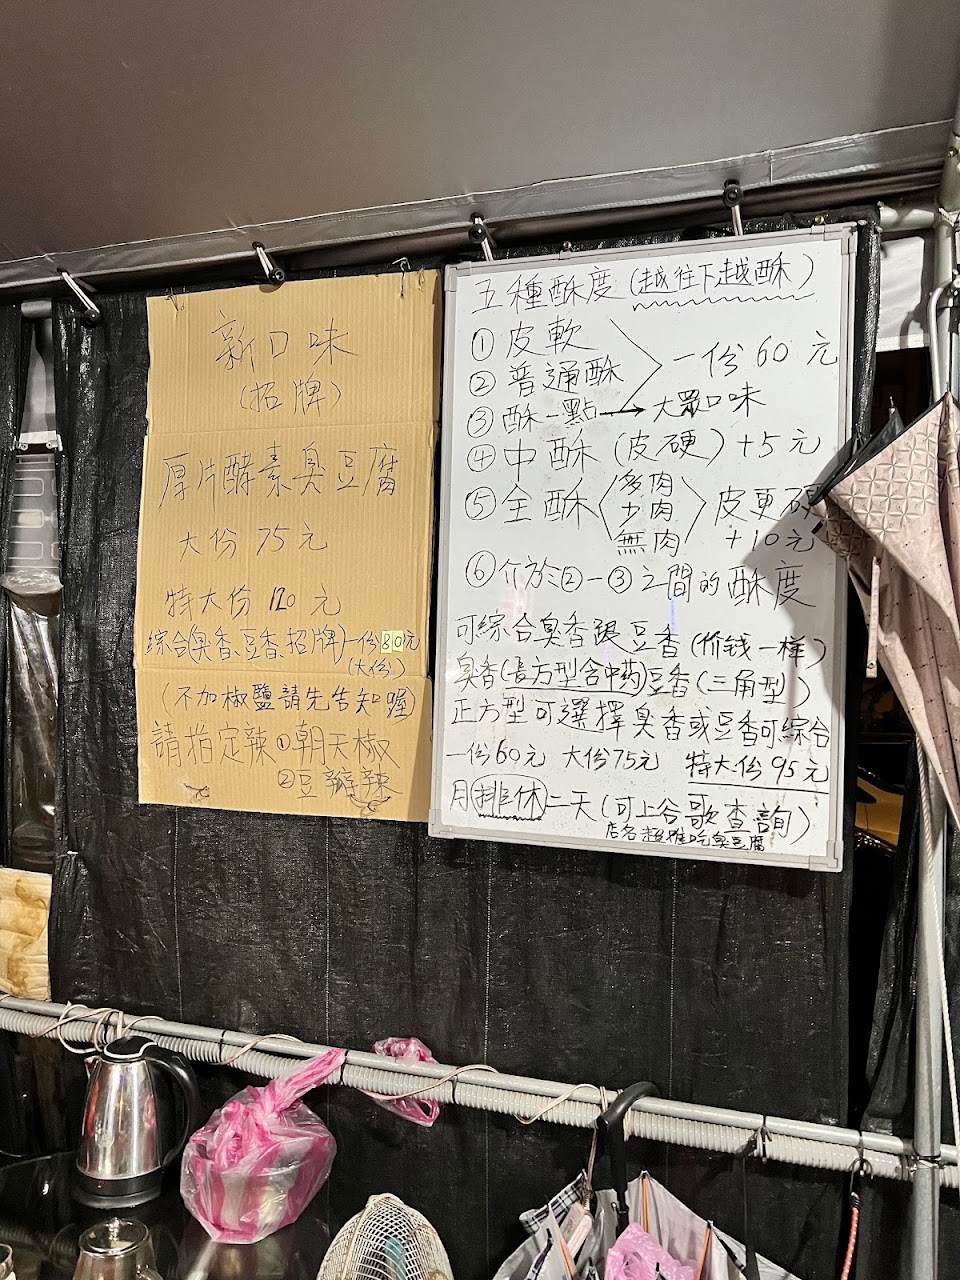 新口味
(招牌)
厚片酵素臭豆腐
大份 75元
特大份 120元
綜合(臭香、豆香、招牌)一份80元
(大份)
(不加椒鹽請先告知喔)
請指定辣①朝天椒
②豆瓣辣
五種酥度(越往下越酥)
①皮軟
②普通酥
一份60元
③酥一點→大眾口味
④中酥(皮硬)+5元
⑤全酥〈多肉 少肉 無肉〉皮更硬
+10元
⑥介於②-③之間的酥度
可綜合臭香跟豆香(价钱一样)
臭香(長方型含中药)豆香(三角型)
正方型可選擇臭香或豆香可綜合
一份60元 大份75元 特大份95元
月排休二天(可上谷歌查詢)
店名超推吃臭豆腐